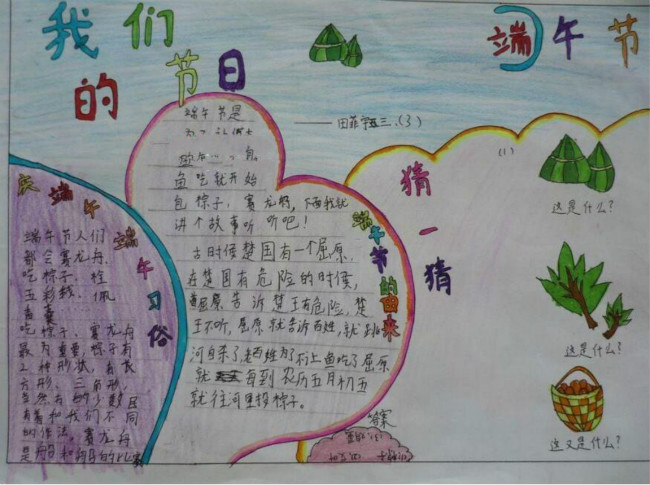 我们
的节日
端午节
——田菲宇五三.(3)
端午节是
包
鱼吃就开始
包粽子，赛龙舟，下面我就
讲个故事听听吧！
古时候楚国有一个屈原，
在楚国有危险的时候，
屈原告诉楚王有危险，楚
王不听，屈原就告诉百姓，就跳
河自杀了，老百姓为了不上鱼吃了屈原
就每到农历五月初五
就往河里投粽子。
端午节的由来
庆端午
端午习俗
端午节人们
都会赛龙舟，
吃粽子，拴
五彩线，佩
香囊
吃粽子、赛龙舟
最为重要，粽子有
2种形状，有长
方形，三角形，
当然有的少数民
有着和我们不同
的作法，赛龙舟
猜一猜
(1)
这是什么？
这是什么？
这又是什么？
答案